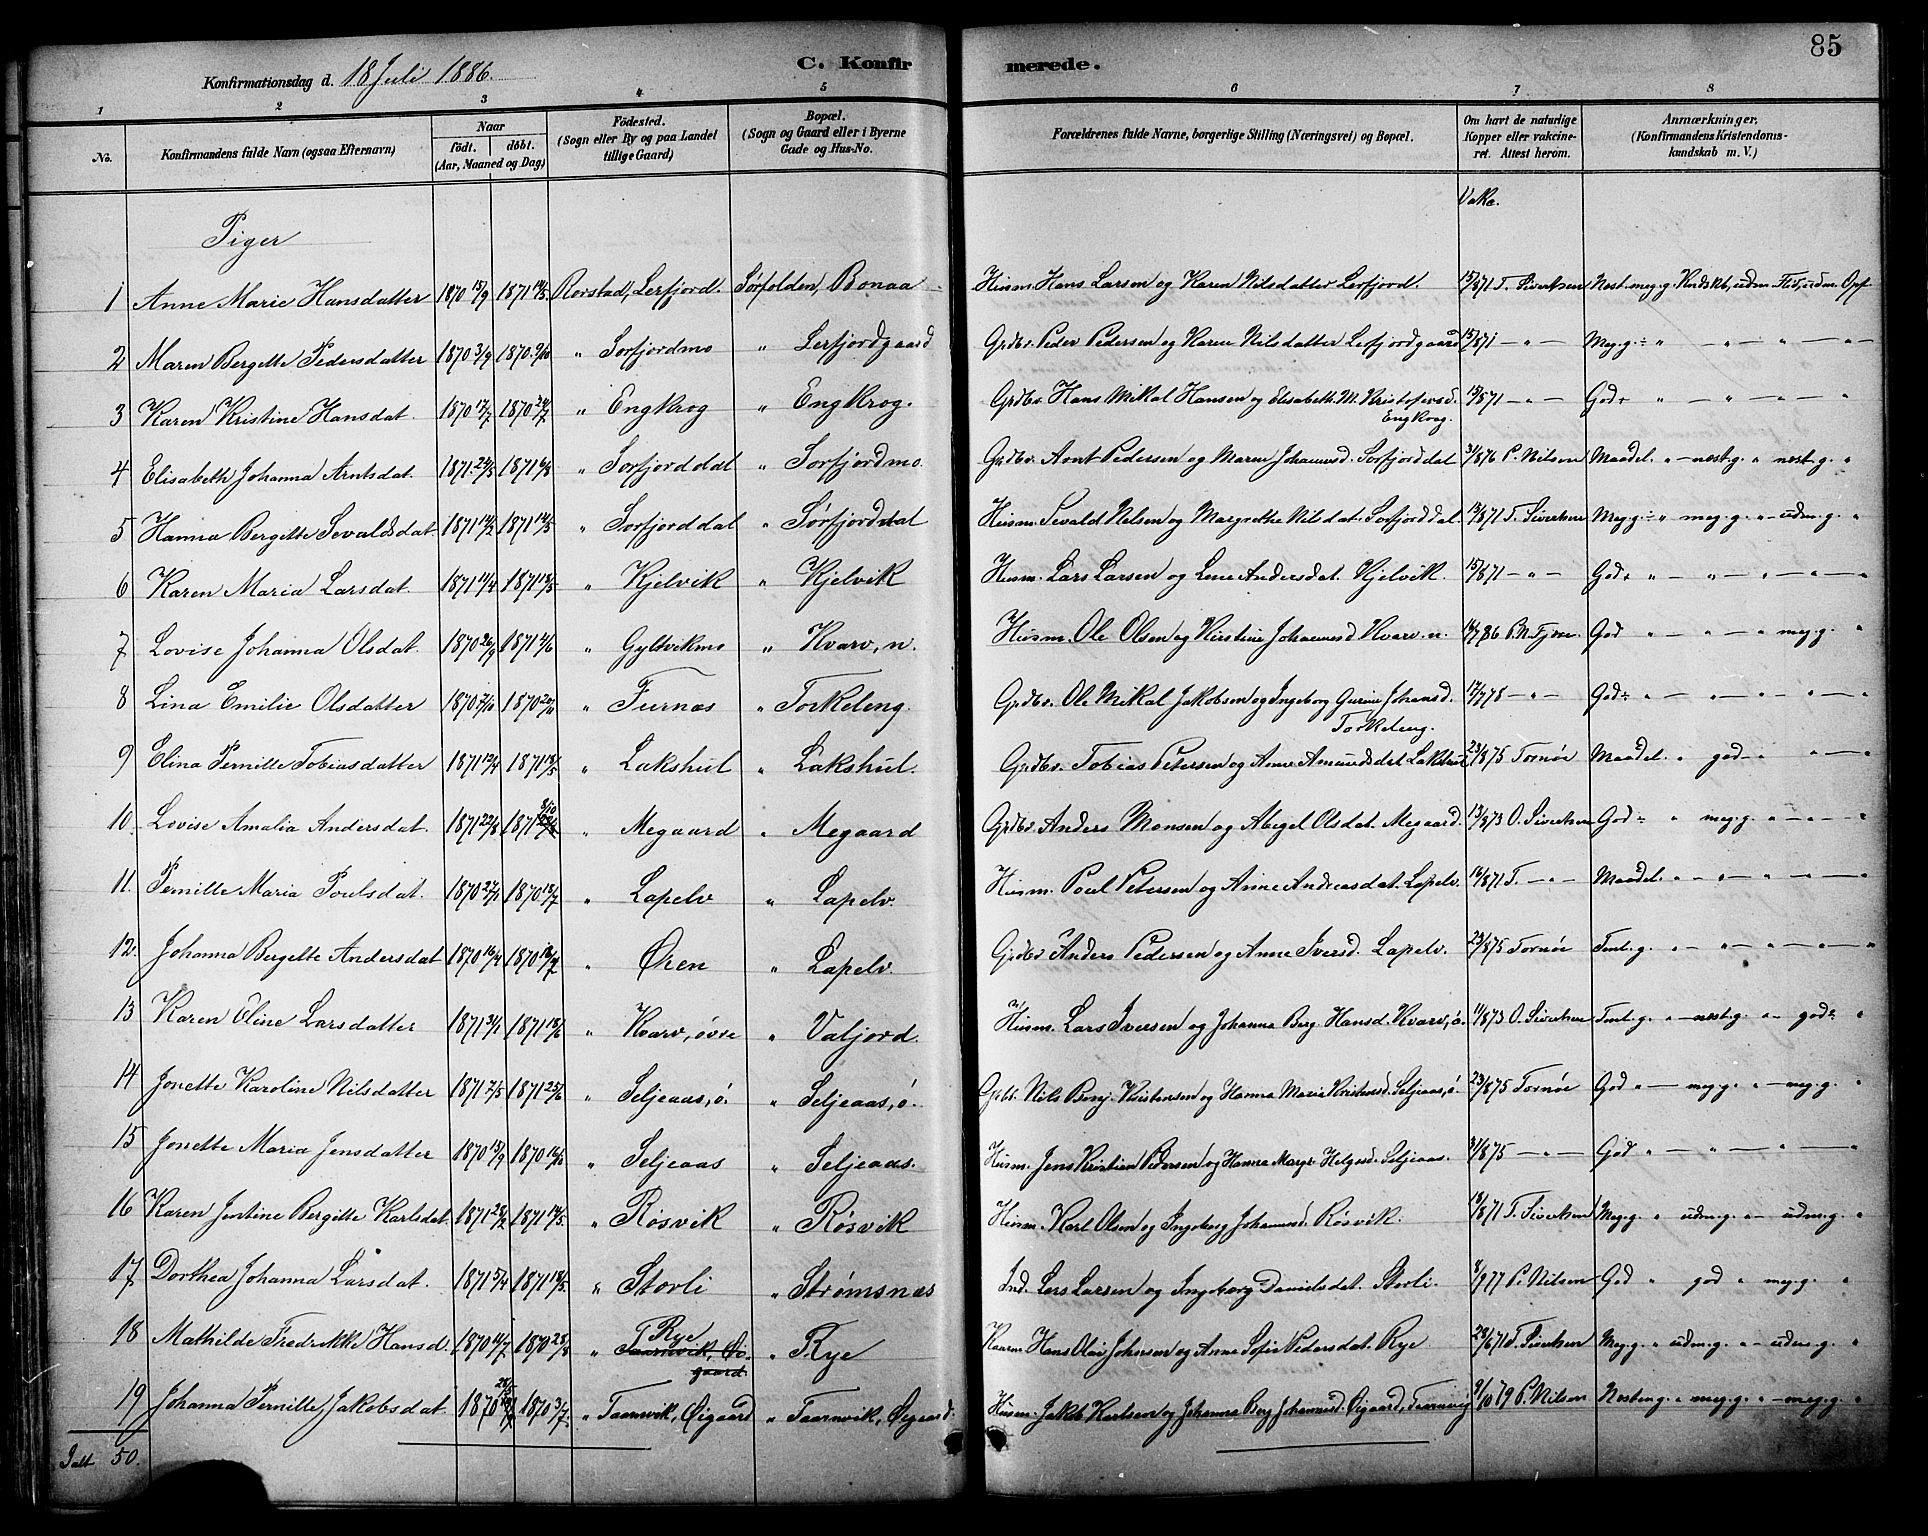 85
Konfirmationsdag d. 18 Juli 1886.
C. Konfirmerede.
1 2 3 4 5 6 7 8
No.
Konfirmandens fulde Navn (ogsaa Efternavn)
Naar
født. døbt.
(Aar, Maaned og Dag)
Fødested.
(Sogn eller By og paa Landet
tillige Gaard)
Bopæl.
(Sogn og Gaard eller i Byerne
Gade og Hus-No.
Forældrenes fulde Navne, borgerlige Stilling (Næringsvei) og Bopæl.
Om havt de naturlige
Kopper eller vakcine-
ret. Attest herom.
Anmærkninger,
(Konfirmandens Kristendoms-
kundskab m. V.)
Vakc.
Piger
1 Anne Marie Hansdatter 1870 15/9 1871 14/5 Rorstad, Lerfjord. Sørfolden, Bonaa Husm. Hans Larsen og Karen Nilsdatter Lerfjord. 15/871 T. Sivertsen
2 Maren Bergitte Pedersdatter 1870 3/9 1870 9/10 " Sørfjordmo " Lerfjordgaard Grdbr. Peder Pedersen og Karen Nilsdatter Lerfjordgaard 15/871 — " — Meg.g. ÷ " — " — " — " —
3 Karen Kristine Hansdat. 1870 17/7 1870 24/7 " Engkrog " Engkrog. Grdbr. Hans Mikal Hansen og Elisabeth M. Kristofersd. Engkrog. 15/871 — " — God+ " — " — " — "
4 Elisabeth Johanna Arntsdat. 1871 24/3 1871 6/8 " Sørfjorddal " Sørfjordmo. Grdbr. Arnt Pedersen og Maren Johannesd. Sørfjorddal 31/876 P. Nilsen Maadel. " — nest.g. " nest.g. "
5 Hanna Bergitte Sevaldsdat. 1871 14/2 1871 14/5 " Sørfjorddal " Sørfjorddal Husm. Sevald Nilsen og Margrethe Nilsdat. Sørfjorddal 15/871 T. Sivertsen Meg.g ÷ " meg.g. " — udm.g. "
6 Karen Maria Larsdat. 1871 11/4 1871 18/5 " Kjelvik " Kjelvik Husm. Lars Larsen og Lene Andersdat. Kjelvik. 15/871 — " — God+ " — " — " — "
7 Lovise Johanna Olsdat. 1870 26/9 1871 4/6 " Gyltvikmo " Kvarv, n. Husm. Ole Olsen og Kirstine Johannesd Kvarv. n. 14/786 God " — " — meg.g. "
8 Lina Emilie Olsdatter 1870 7/10 1870 20/11 " Furnes " Torkeleng. Grdbr. Ole Mikal Jakobsen og Ingeborg Gurine Johansd. Torkeleng. 17/778 — " — God÷ " — " — " — "
9 Elina Pernille Tobiasdatter 1871 12/4 1871 18/5 " Lakshul " Lakshul. Grdbr. Tobias Petersen og Anne Amundsdat Lakshul 23/875 Tornøe Maadel. " god — " — " — "
10 Lovise Amalia Andersdat. 1871 22/8 1871 8/10 " Megaard " Megaard Grdbr. Anders Monsen og Abigel Olsdat. Megaard. 13/873 O. Sivertsen God÷ " meg.g. " — " — "
11. Pernille Maria Poulsdat. 1870 27/1 1870 18/7 " Lapelv " Lapelv. Husm. Poul Petersen og Anne Andreasdat. Lapelv. 16/871 T. — " — Maadel. " — " — " — "
12. Johanna Bergitte Andersdat 1870 16/4 1870 18/7 " Øren " Lapelv. Grdbr Anders Pedersen og Anne Iversd. Lapelv. 23/875 Tornøe Tmt.g. " — " — " — "
13 Karen Eline Larsdatter 1871 31/1 1871 18/6 " Kvarv, øvre " Valjord. Husm. Lars Iversen og Johanna Berg. Hansd. Kvarv, ø. 11/873 O. Sivertsen Tmt.g. " — nest.g. " — god÷ "
14 Jonette Karoline Nilsdatter 1871 2/5 1871 25/6 " Seljeaas, ø. " Seljeaas, ø. Grdbr. Nils Benj. Kristensen og Hanna Maria Kristensd. Seljeaas, ø. 23/875 Tornøe God " — meg.g. " — meg.g. "
15 Jonette Maria Jensdatter 1870 15/9 1870 16/10 " Seljeaas " Seljeaas. Husm. Jens Kristian Pedersen og Hanna Margr. Helgesd. Seljeaas. 31/875 — " — God " — " — " — "
16 Karen Jentine Bergitte Karlsdat. 1871 28/2 1871 14/5. " Røsvik " Røsvik Husm. Karl Olsen og Ingeborg Johannesd. Røsvik. 18/871 T. Sivertsen Meg.g. " udm.g. " — udm.g. "
17 Dorthea Johanna Larsdat. 1871 5/4 1871 18/5. " Storli " Strømsnæs Ind. Lars Larsen og Ingeborg Danielsdat. Storli. 8/977 P. Nilsen God " god " meg.g. "
18 Mathilde Fredrikke Hansd. 1870 14/7 1870 28/8 " Rye Taarnvik, Øigaard " Rye Kaarm. Hans Olai Johnsen og Anne Sofie Pedersdat. Rye 28/671 T. Sivertsen Meg.g " udm.g. " — udm.g. "
19 Johanna Pernille Jakobsdat. 1870 28/5 1870 3/7. " Taarnvik, Øigaard " Taarnvik, Øigaard. Husm. Jakob Karlsen og Johanna Berg Johannesd. Øigaard, Taarnvig 9/1079 P. Nilsen Nesten g. " meg.g. " — meg.g. "
Ialt 50.